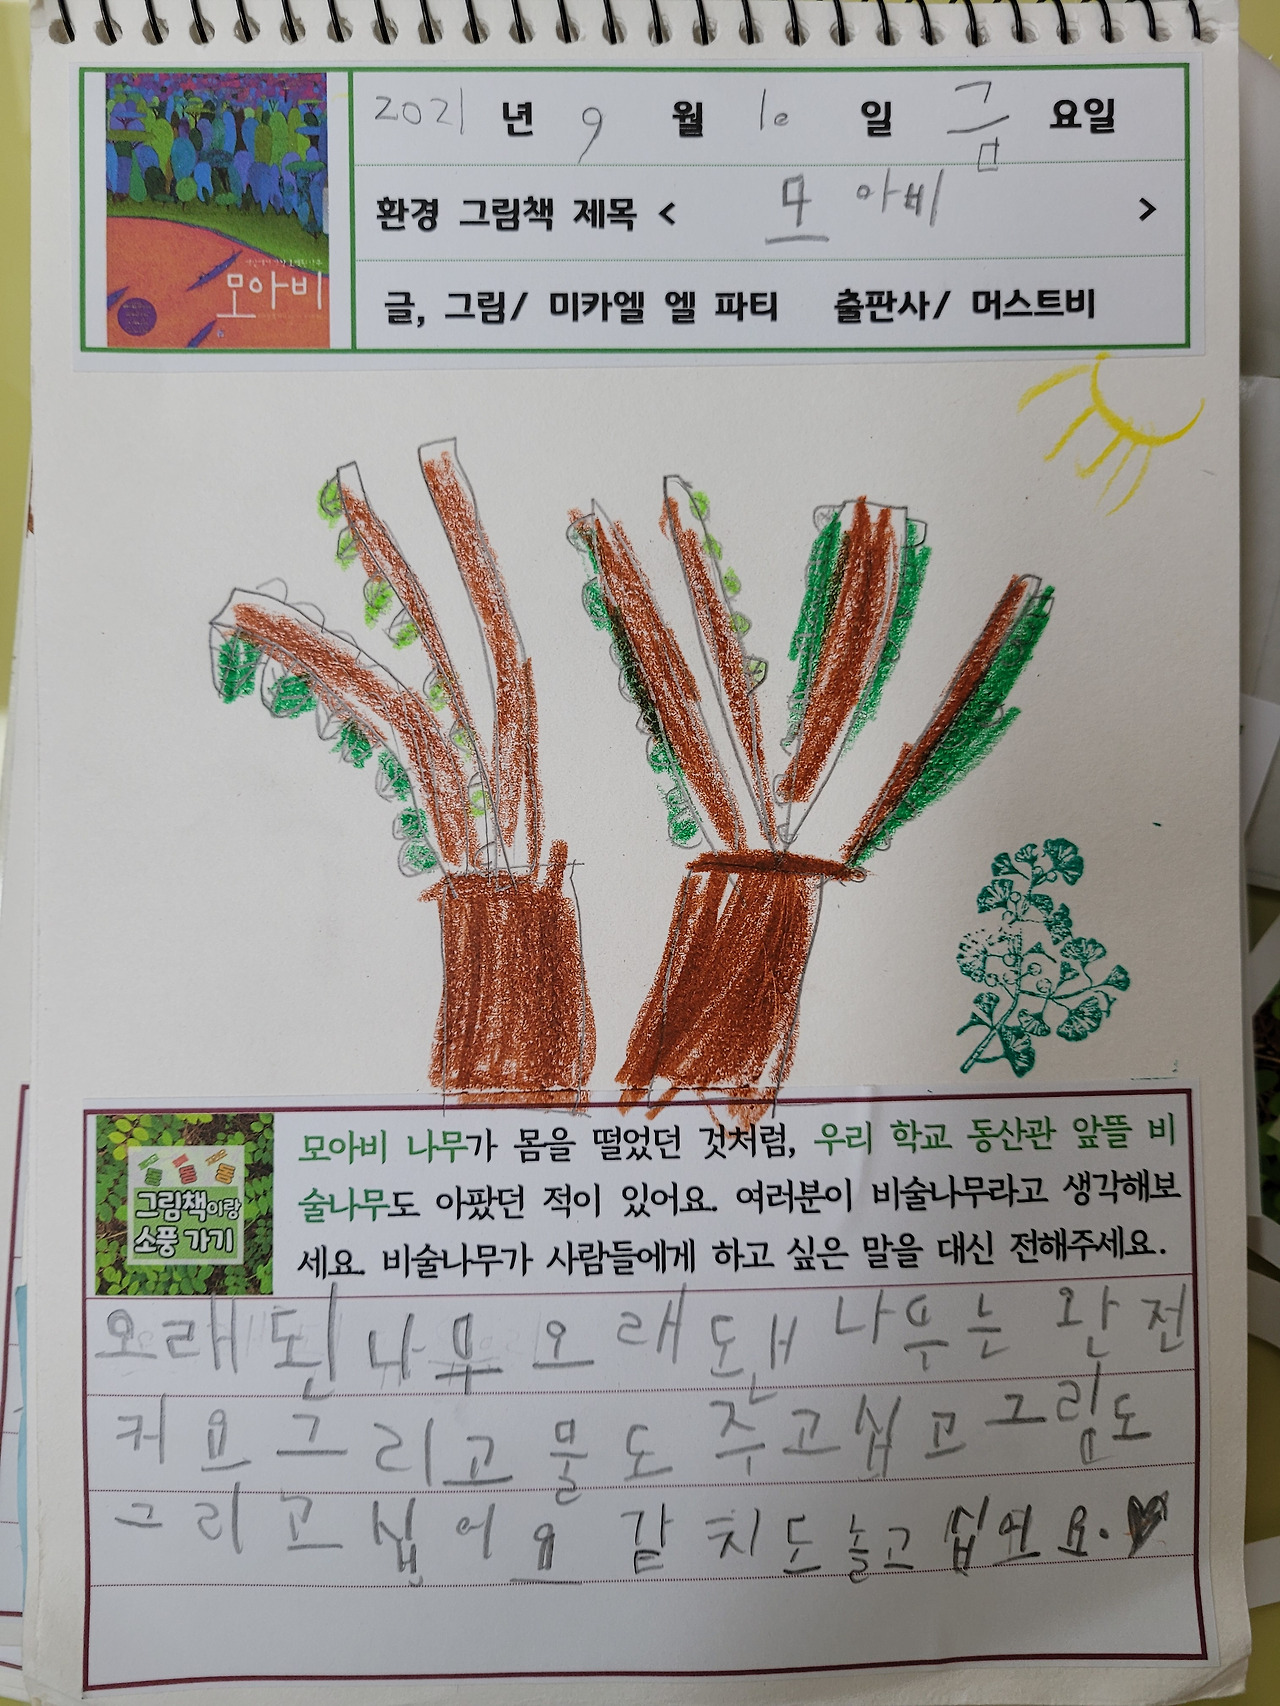 2021 년 9 월 10 일 금 요일
환경 그림책 제목 < 모아비 >
글, 그림/ 미카엘 엘 파티 출판사/ 머스트비
모아비
모아비 나무가 몸을 떨었던 것처럼, 우리 학교 동산관 앞뜰 비
술나무도 아팠던 적이 있어요. 여러분이 비술나무라고 생각해보
세요. 비술나무가 사람들에게 하고 싶은 말을 대신 전해주세요.
그림책이랑
소풍 가기
오래된 나무 오래 나무는 완전
커요 그리고 물도 주고 십고 그림도
그리고 십어요 같치도 놀고 십어요.